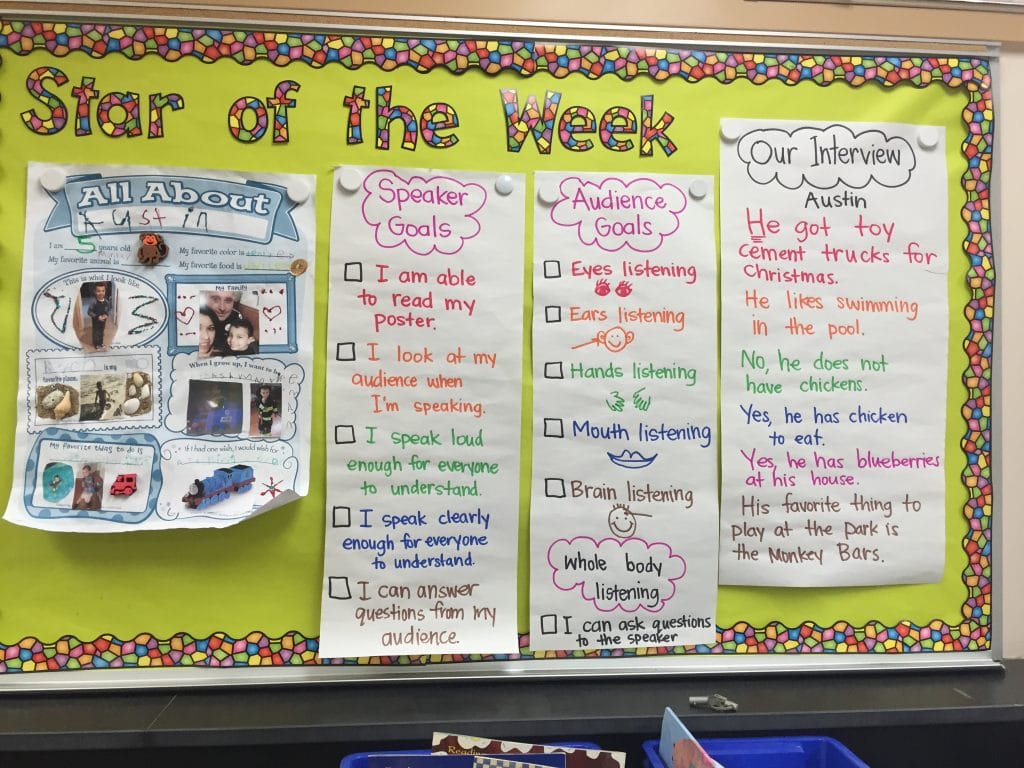 Star of the Week
All About
Austin
I am 5 years old
My favorite animal is
My favorite color is
My favorite food is
This is what I look like
My Family
is my
favorite place.
When I grow up, I want to be
My favorite thing to do is
If I had one wish, I would wish for
Speaker
Goals
I am able
to read my
poster.
I look at my
audience when
I'm speaking.
I speak loud
enough for everyone
to understand.
I speak clearly
enough for everyone
to understand.
I can answer
questions from my
audience.
Audience
Goals
Eyes listening
Ears listening
Hands listening
Mouth listening
Brain listening
Whole body
listening
I can ask questions
to the speaker
Our Interview
Austin
He got toy
cement trucks for
Christmas.
He likes swimming
in the pool.
No, he does not
have chickens.
Yes, he has chicken
to eat.
Yes, he has blueberries
at his house.
His favorite thing to
play at the park is
the Monkey Bars.